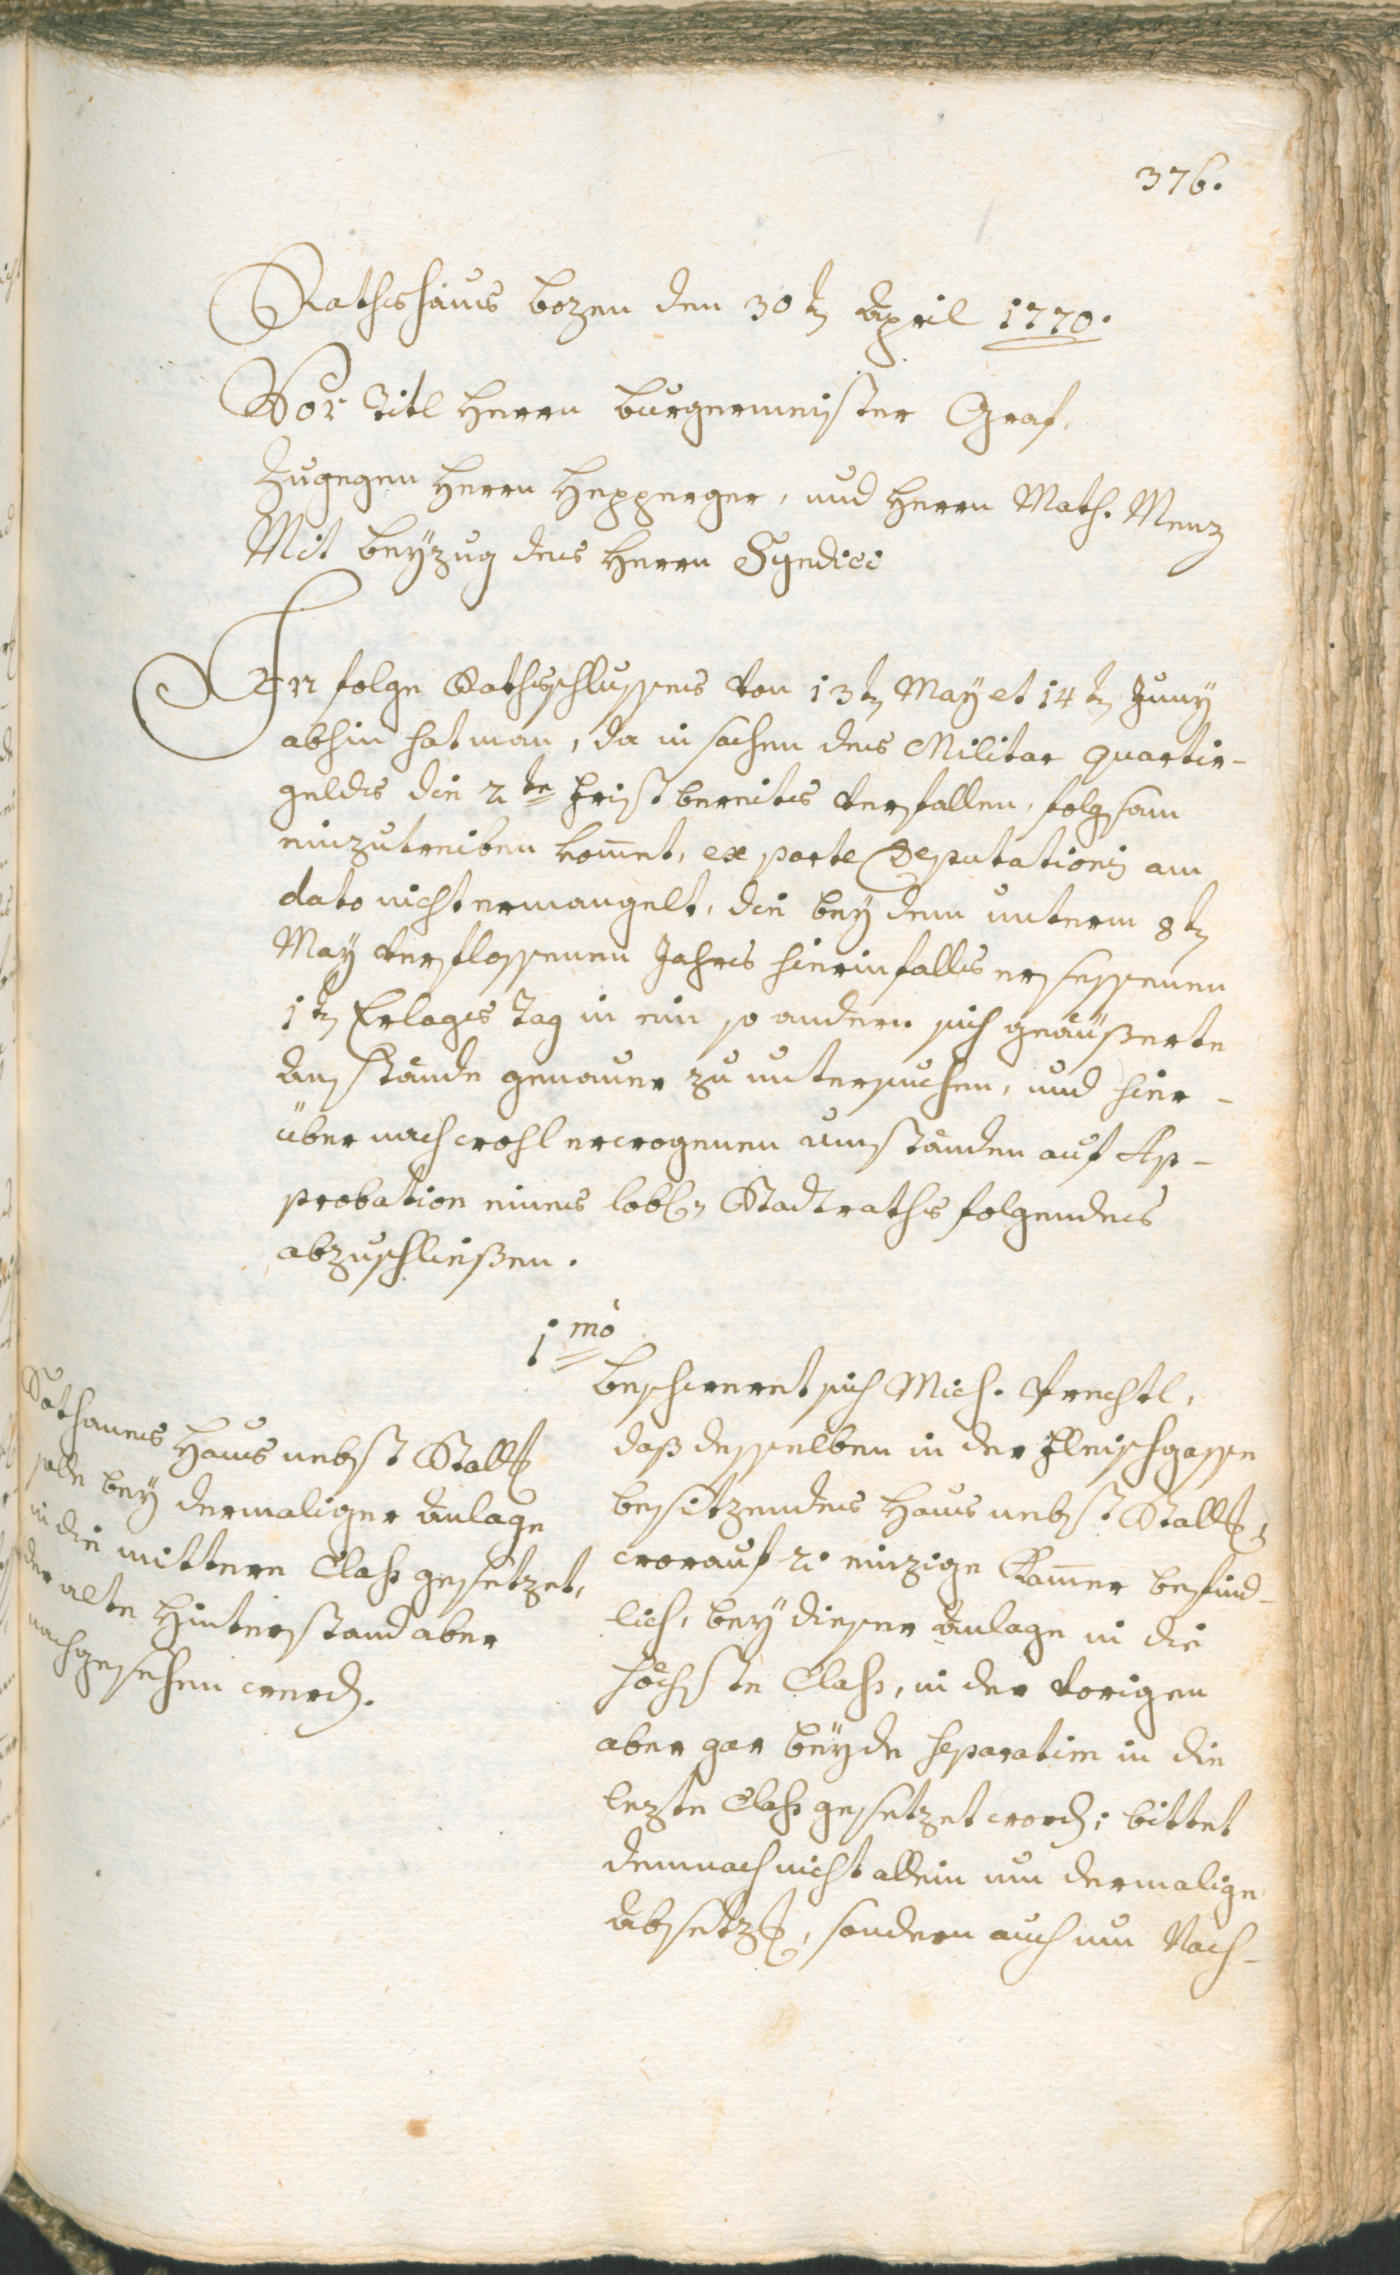 376.
Rathshaus bozen den 30t̲e̲n̲ April 1770.
Vor Titl Herrn burgermeister Graf,
Zugegen Herrn Hepperger, und Herrn Math. Menz
Mit beyzug des Herrn Syndici
In folge Rathsschlusses von 13ten May et 14ten Juny
abhin hat man, da in sachen des Militar quartir-
gelds die 2te Frist bereits verfallen, folgsam
einzutreiben kom̅et, ex parte Deputationis am
dato nicht ermangelt, die bey dem unterm 8ten
May verflossenen Jahrs hierinfalls ersessenen
1ten Erlags Tag in ein so andern sich geäußerte
Anstände genauer zu untersuchen, und hier-
über nach wohl erwogenen umständen auf Ap-
probation eines lobl. Stadtraths folgendes
abzuschließen.
1mò
beschweret sich Mich. Prechtl,
daß desselben in der Fleischgasse
besitzendes Haus nebst Stallg,
worauf 2. einzige Kam̅er befind-
lich, bey dieser Anlage in die
höchste Class, in der vorigen
aber gar beyde separatim in die
lezte Class gesetzet word; bittet
demnach nicht allein um dermalige
Absetzg, sondern auch um Nach-
Sothanes Haus nebst Stallg
solle bey dermaliger Anlage
in die mittere Class gesetzet,
der alte Hinterstand aber
nachgesehen werd.